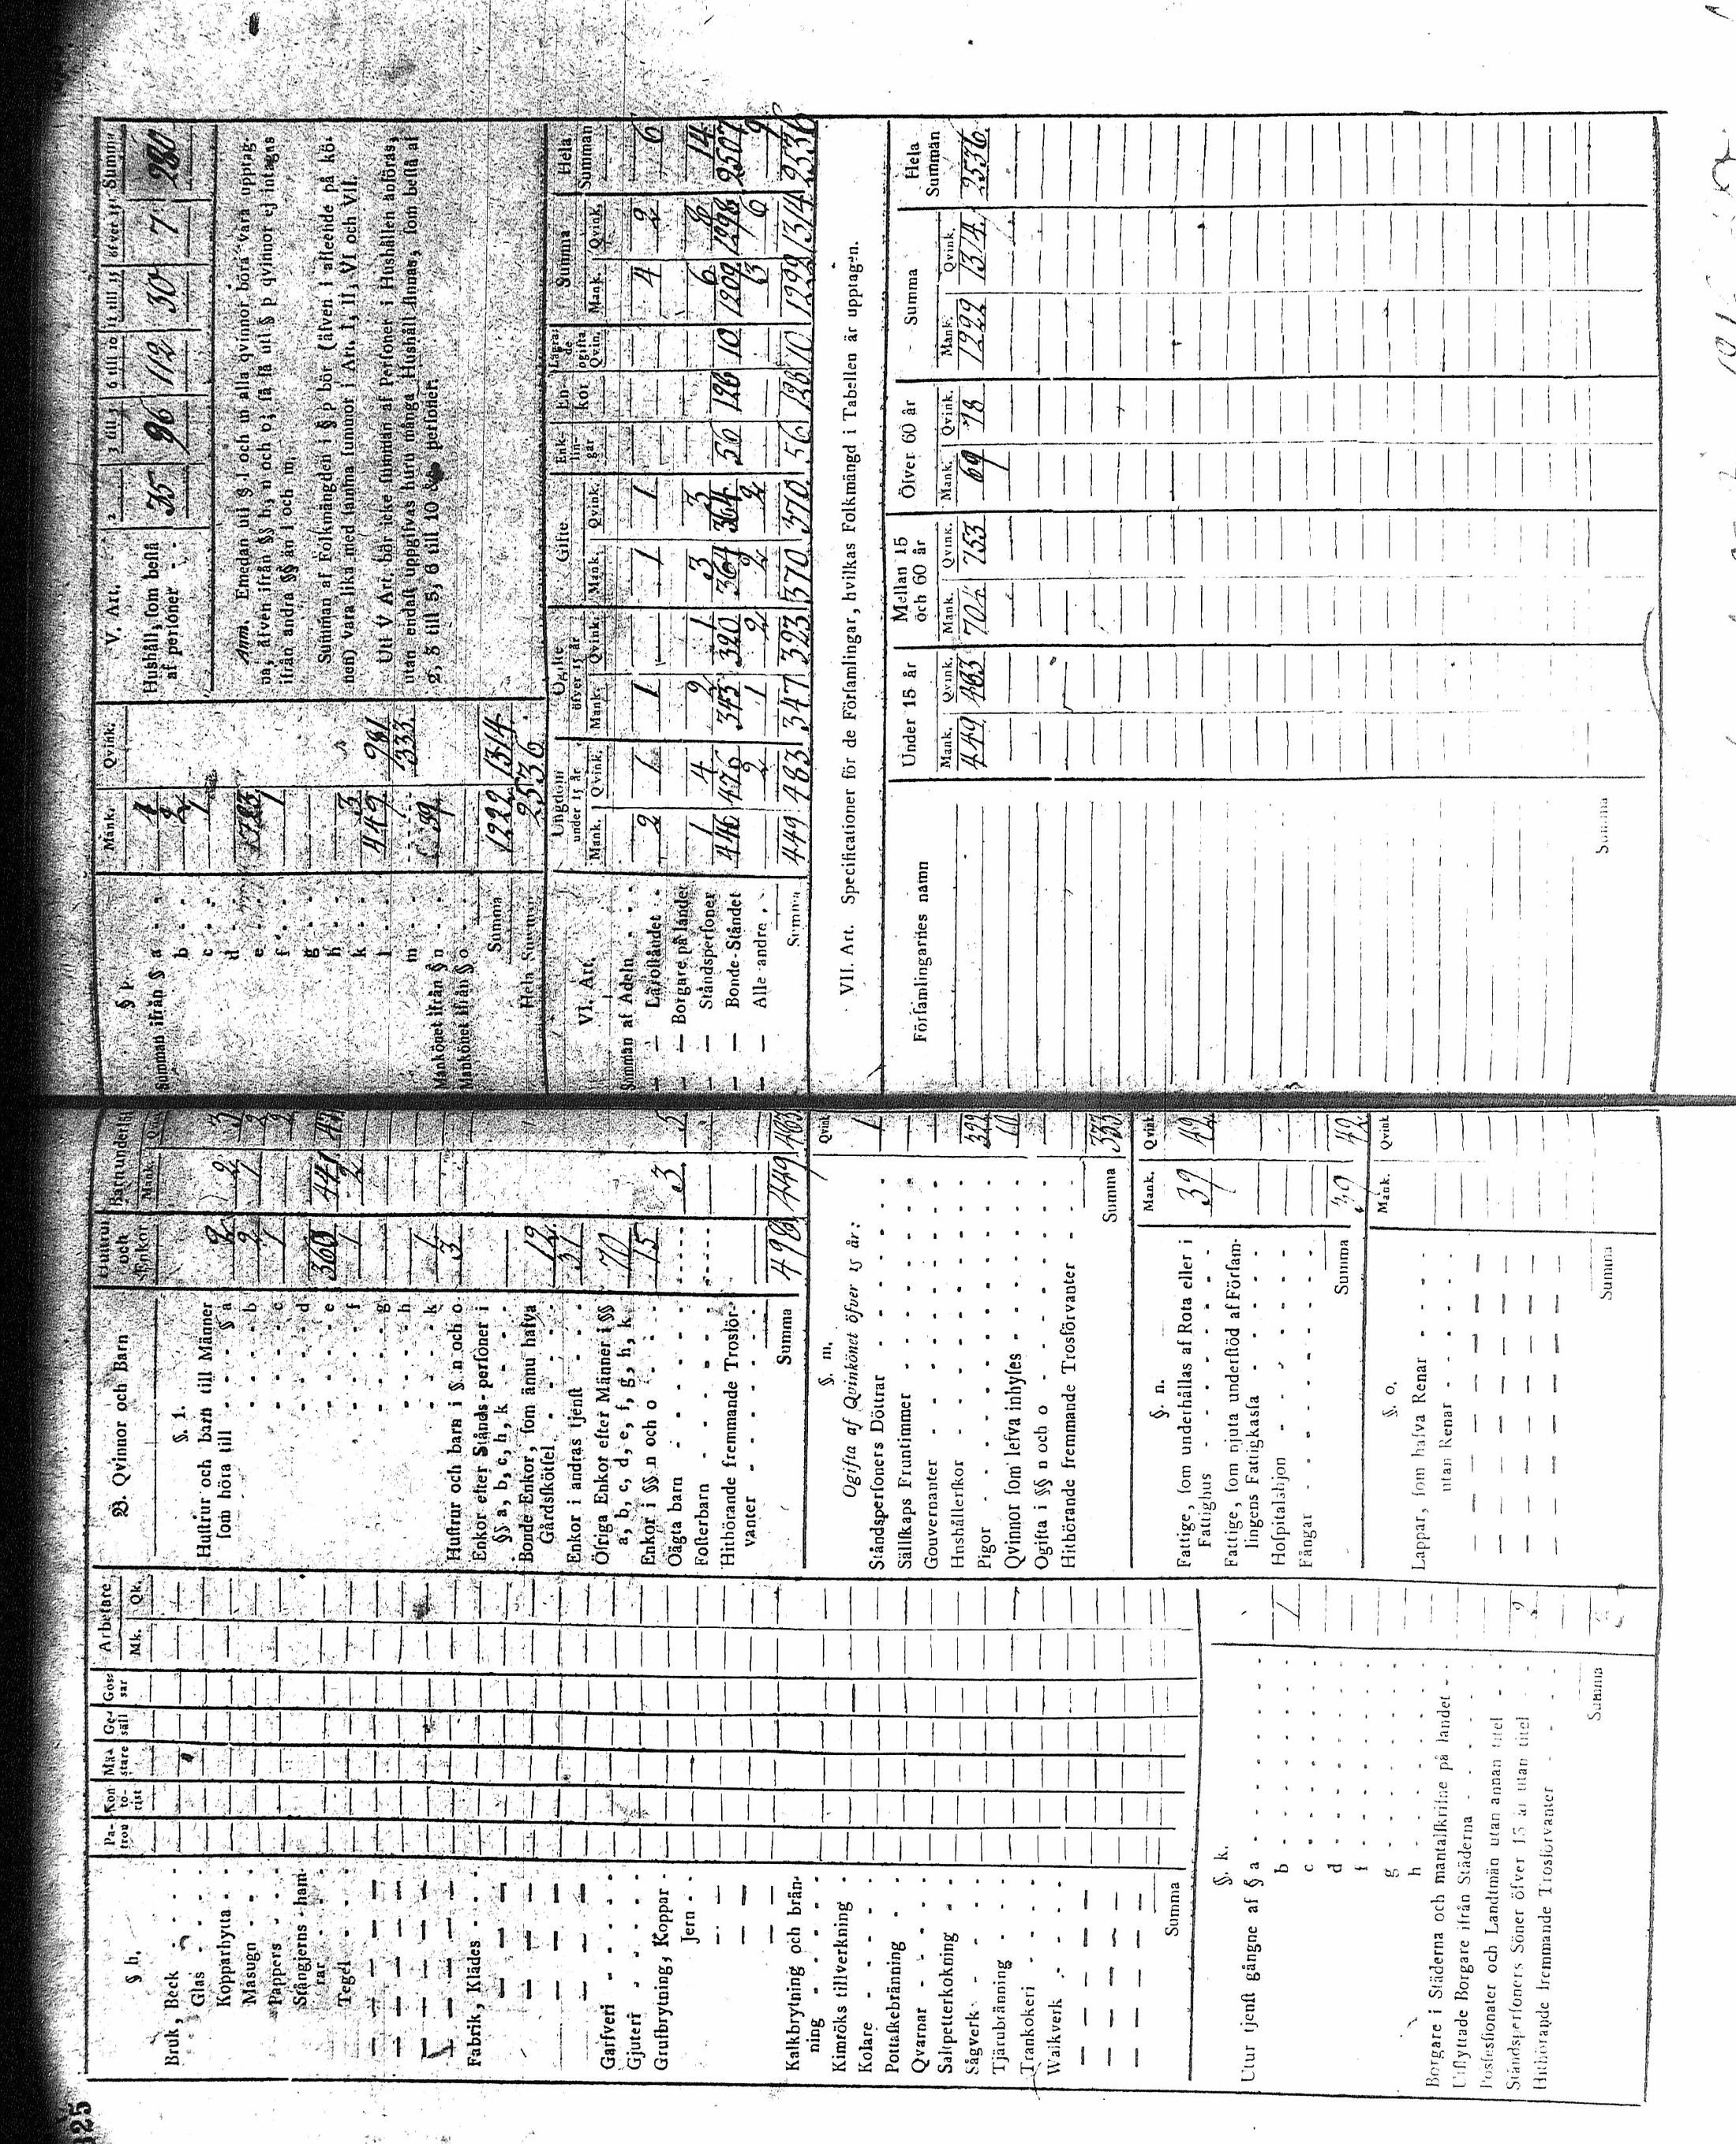 125
§ h.
Pa-tron Kon-to-rist Mä-stare Ge-säll Gos-sar Arbetare
Mk. Qk.
Bruk, Beck
Glas
Kopparhytta
Masugn
Pappers
Stångjerns-ham-
rar
Tegel
Fabrik, Klädes
Garfveri
Gjuteri
Grufbrytning, Koppar
Jern
Kalkbrytning och brän-
ning
Kimröks tillverkning
Kolare
Pottaskebränning
Qvarnar
Saltpetterkokning
Sågverk
Tjärubränning
Trankokeri
Walkverk
Summa
§. k.
Utur tjenst gångne af § a
b 1
c
d
f
g
h
Borgare i Städerna och mantalskrifne på landet
Utflyttade Borgare ifrån Städerna
Possessionater och Landtmän utan annan titel
Ståndspersoners Söner öfver 15 år utan titel 2
Hithörande fremmande Trosförvanter
Summa
B. Qvinnor och Barn
Hustrur och Enkor Barn under 15
Mank. Qvink.
§. l.
Hustrur och barn till Männer
som höra till § a 2 2 3
b 2 1 2
c 1 2
d
e 360 441
f 1 2
g
h
k 1
Hustrur och barn i § n och o 3
Enkor efter Stånds-personer i
§§ a, b, c, h, k
Bonde Enkor, som ännu hafva
Gårdsskötsel 12
Enkor i andras tjenst 31
Öfriga Enkor efter Männer i §§
a, b, c, d, e, f, g, h, k 70
Enkor i §§ n och o 15
Oägta barn 3 5
Fosterbarn
Hithörande fremmande Trosför-
vanter
Summa 496 449 483
§. m.
Ogifta af Qvinkönet öfver 15 år: Qvink.
Ståndspersoners Döttrar 1
Sällskaps Fruntimmer
Gouvernanter
Hushållerskor
Pigor 322
Qvinnor som lefva inhyses 10
Ogifta i §§ n och o
Hithörande fremmande Trosförvanter
Summa 333
§. n.
Mank. Qvink.
Fattige, som underhållas af Rota eller i
Fattighus 39 42
Fattige, som njuta understöd af Försam-
lingens Fattigkassa
Hospitalshjon
Fångar
Summa 39 42
§. o.
Mank. Qvink.
Lappar, som hafva Renar
utan Renar
Summa
§ p.
Mank. Qvink.
Summan ifrån § a 4
b 2
c 1
d
e 723
f 1
g
h
k 3
l 449 981
m 333
Mankönet ifrån § n 39
Mankönet ifrån § o
Summa 1222 1314
Hela Summan 2536
V. Art. 2 3 till 5 6 till 10 11 till 15 öfver 15 Summa
Hushåll, som bestå
af personer 35 96 112 30 7 280
Anm. Emedan uti § l och m alla qvinnor böra vara upptag-
na, äfven ifrån §§ h, n och o; så få uti § p qvinnor ej intagas
ifrån andra §§ än l och m.
Summan af Folkmängden i § p bör (äfven i afseende på kö-
nen) vara lika med samma summor i Art. I, II, VI och VII.
Uti V Art. bör icke summan af Personer i Hushållen anföras,
utan endast uppgifvas huru många Hushåll finnas, som bestå af
2, 3 till 5, 6 till 10 &c personer.
VI. Art. Ungdom under 15 år Ogifte öfver 15 år Gifte Enk-lin-gar En-kor Lägra-de ogifta Qvin. Summa Hela Summan
Mank. Qvink. Mank. Qvink. Mank. Qvink. Mank. Qvink.
Summan af Adeln
— — Läroståndet 2 1 1 1 1 4 2 6
— — Borgare på landet
— — Ståndspersoner 1 4 2 1 3 3 6 8 14
— — Bonde-Ståndet 446 476 343 320 364 364 56 126 10 1209 1298 2507
— — Alle andre 2 1 2 2 2 3 6 9
Summa 449 483 347 323 370 370 56 126 10 1222 1314 2536
VII. Art. Specificationer för de Församlingar, hvilkas Folkmängd i Tabellen är upptagen.
Församlingarnes namn Under 15 år Mellan 15 och 60 år Öfver 60 år Summa Hela Summan
Mank. Qvink. Mank. Qvink. Mank. Qvink. Mank. Qvink.
449 483 704 753 69 78 1222 1314 2536
Summa